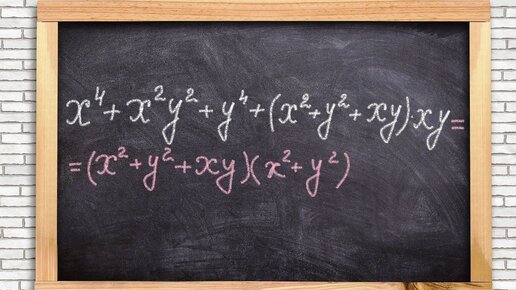 x⁴+x²y²+y⁴+(x²+y²+xy)·xy=
=(x²+y²+xy)(x²+y²)